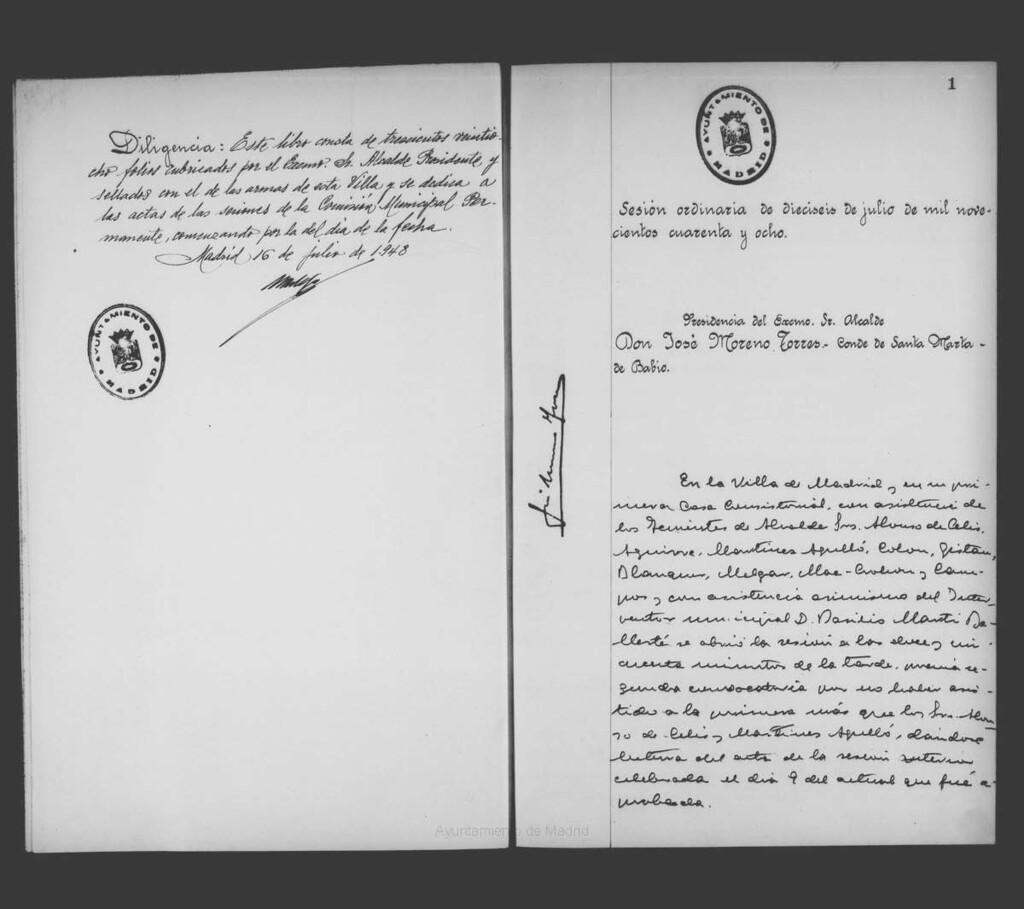 Diligencia: Este libro consta de trescientos veintio-
cho folios rubricados por el Excmo. Sr. Alcalde Presidente, y
sellados con el de las armas de esta Villa y se dedica a
las actas de las sesiones de la Comisión Municipal Per-
manente, comenzando por la del día de la fecha.
Madrid 16 de julio de 1948
AYUNTAMIENTO DE MADRID
1
AYUNTAMIENTO DE MADRID
Sesión ordinaria de dieciseis de julio de mil nove-
cientos cuarenta y ocho.
Presidencia del Excmo. Sr. Alcalde
Don José Moreno Torres.- Conde de Santa Marta-
de Babío.
En la Villa de Madrid y en su pri-
mera Casa Consistorial, con asistencia de
los Tenientes de Alcalde Srs. Alonso de Celis,
Aguirre, Martínez Agulló, Colon, Gistau,
Blanquer, Melgar, Mac-Crohon y Cam-
pos y con asistencia asimismo del Inter-
ventor municipal D. Basilio Martí Ba-
llesté se abrió la sesión a las doce y cin-
cuenta minutos de la tarde, previa se-
gunda convocatoria por no haber asis-
tido a la primera más que los Srs. Alon-
so de Celis y Martínez Agulló, dándose
lectura del acta de la sesión anterior
celebrada el día 9 del actual que fué a-
probada.
Ayuntamiento de Madrid